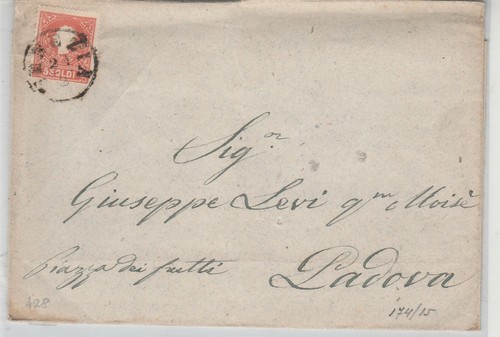 5 SOLDI
Sig.or
Giuseppe Levi qm Moisè
Piazza dei frutti Padova
428
174/15